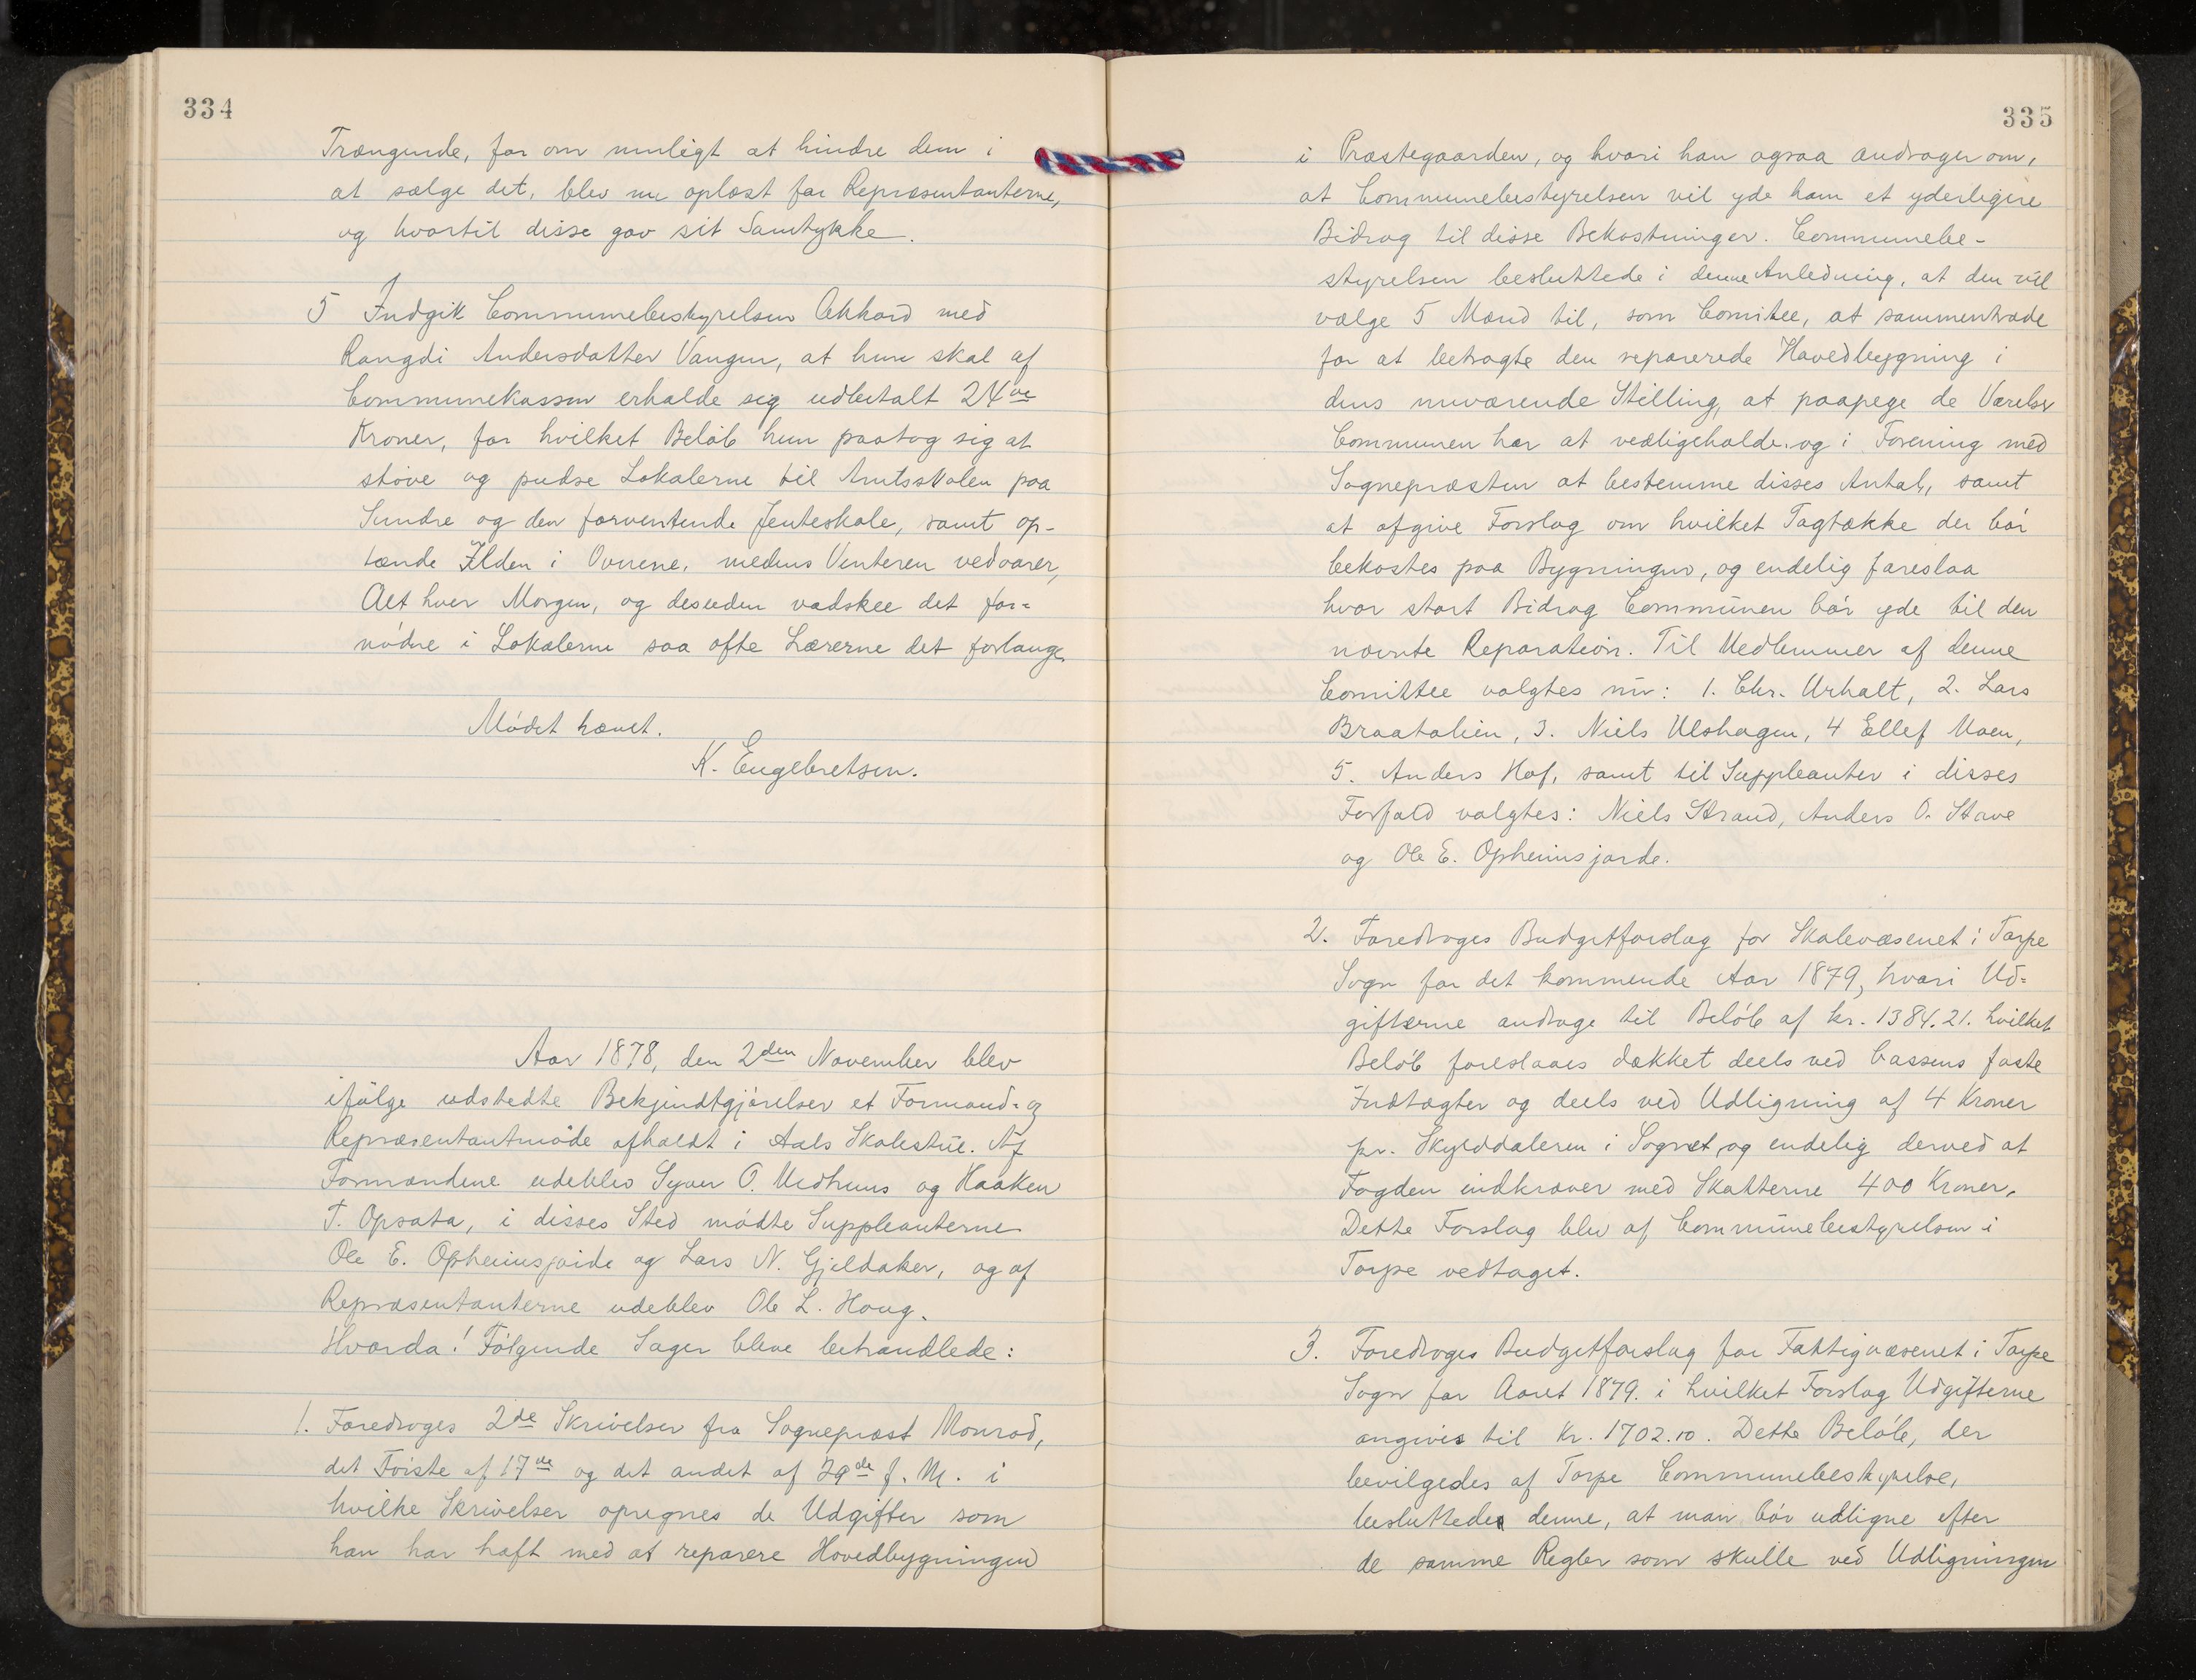 334
Trængende, for om muligt at hindre dem i
at sælge det, blev nu oplæst for Repræsentanterne,
og hvortil disse gav sit Samtykke.
5 Indgik Communebestyrelsen Akkord med
Rangdi Andersdatter Vangen, at hun skal af
Communekassen erholde sig udbetalt 24
Kroner, for hvilket Beløb hun paatog sig at
støve og pudse Lokalerne til Amtsskolen paa
Sundre og den forventende Jenteskole, samt op-
tænde Ilden i Ovnene, medens Vinteren vedvarer,
Alt hver Morgen, og desuden vadskee det for=
nødne i Lokalerne saa ofte Lærerne det forlange.
Mødet hævet.
K. Engebretsen.
Aar 1878, den 2den November blev
ifølge udstedte Bekjendtgjørelser et Formand- og
Repræsentantmøde afholdt i Aals Skolestue. Af
Formændene udeblev Syver O. Medhuus og Haaken
T. Opsata, i disses Sted mødte Suppleanterne
Ole E. Opheimsjorde og Lars N. Gjeldaker, og af
Repræsentanterne udeblev Ole L. Houg.
Hvorda! Følgende Sager bleve behandlede:
1. Foredroges 2de Skrivelser fra Sognepræst Monrad,
det Første af 17de og det andet af 29de f. M. i
hvilke Skrivelser opregnes de Udgifter som
han har haft med at reparere Hovedbygningen
335
i Præstegaarden, og hvori han ogsaa andrager om,
at Communebestyrelsen vil yde ham et yderligere
Bidrag til disse Bekostninger. Communebe-
styrelsen besluttede i denne Anledning, at den vil
vælge 5 Mænd til, som Comitee, at sammentræde
for at betragte den reparerede Hovedbygning i
dens nuværende Stilling, at paapege de Værelser
Communen har at vedligeholde, og i Forening med
Sognepræsten at bestemme disses Antal, samt
at afgive Forslag om hvilket Tagtække der bør
bekostes paa Bygningen, og endelig foreslaa
hvor stort Bidrag Communen bør yde til den
nævnte Reparation. Til Medlemmer af denne
Comittee valgtes nu: 1. Chr. Urhalt, 2. Lars
Braatalien, 3. Niels Ulshagen, 4 Ellef Moen,
5. Anders Hof, samt til Suppleanter i disses
Forfald valgtes: Niels Strand, Anders O. Stave
og Ole E. Opheimsjorde.
2. Foredroges Budgetforslag for Skolevæsenet i Torpe
Sogn for det kommende Aar 1879, hvori Ud=
gifterne androge til Beløb af kr. 1384.21. hvilket
Beløb foreslaaes dækket deels ved Cassens faste
Indtægter og deels ved Udligning af 4 Kroner
pr. Skylddaleren i Sognet, og endelig derved at
Fogden indkræver med Skatterne 400 Kroner.
Dette Forslag blev af Communebestyrelsen i
Torpe vedtaget.
3. Foredroges Budgetforslag for Fattigvæsenet i Torpe
Sogn for Aaret 1879. i hvilket Forslag Udgifterne
angives til Kr. 1702.10. Dette Beløb, der
bevilgedes af Torpe Communebestyrelse,
besluttede denne, at man bør udligne efter
de samme Regler som skulle ved Udligningen